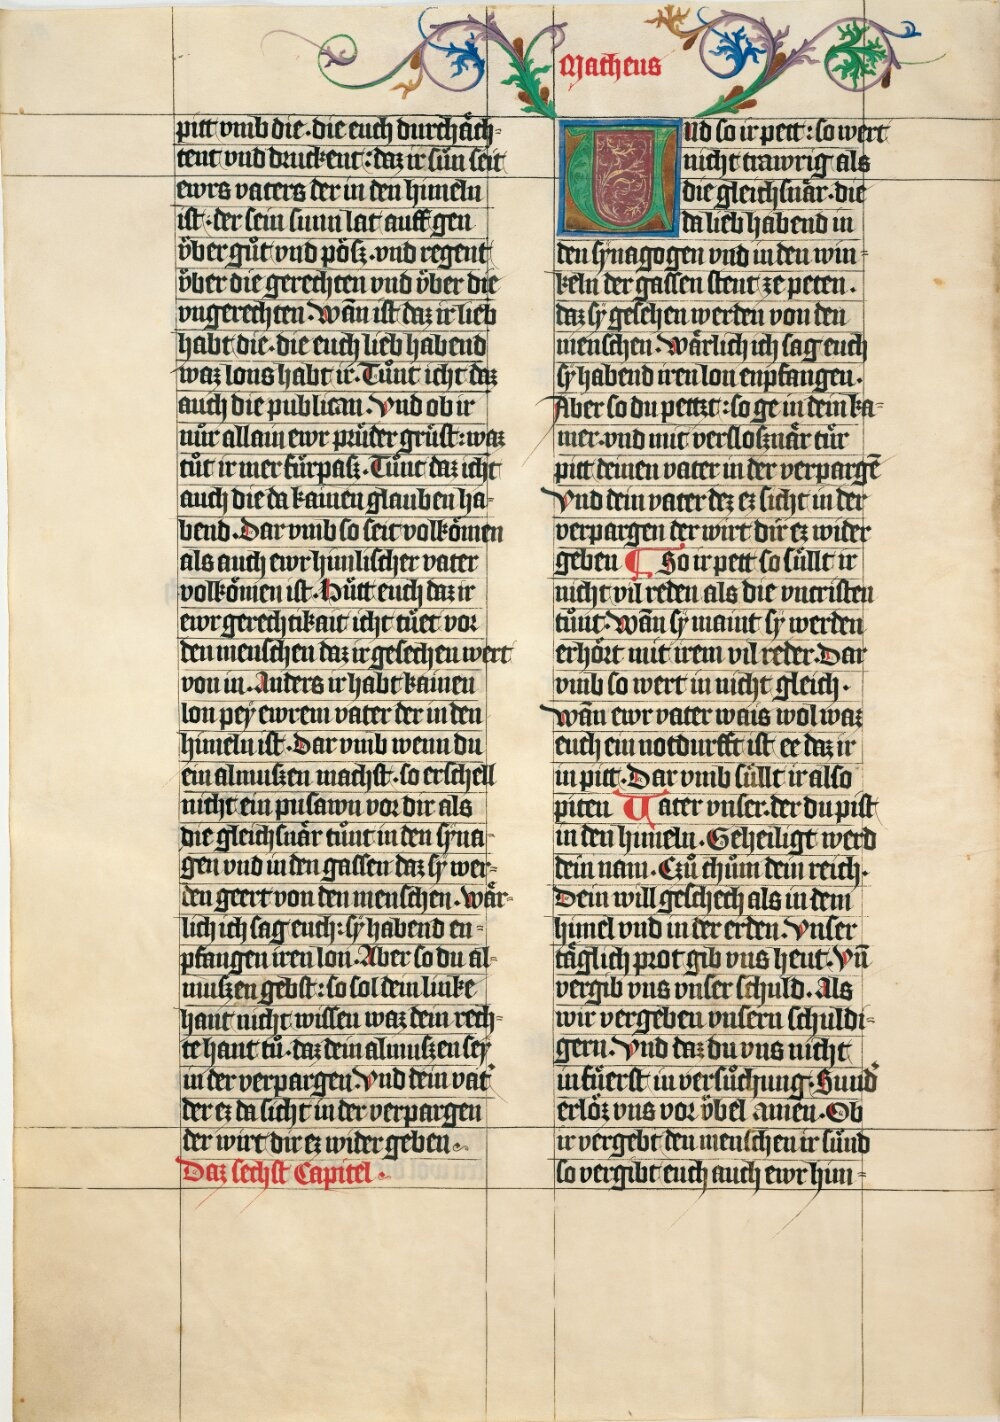 Matheus
pitt vmb die·die euch durchåch-
tent vnd druckent:daz ir sün seit
ewrs vaters der in den himeln
ist·der sein sunn lat auff gen
v̈ber gůt vnd pöß·vnd regent
v̈ber die gerechten vnd v̈ber die
vngerechten·Wañ ist daz ir lieb
habt die·die euch lieb habend
waz lons habt ir·Tůnt icht daz
auch die publican·Vnd ob ir
nür allain ewr prüder grüst:waz
tůt ir mer fürpaß·Tůnt daz icht
auch die da kainen glauben ha-
bend·Dar vmb so seit volkömen
als auch ewr himlischer vater
volkömen ist·Hütt euch daz ir
ewr gerechtikait icht tůet vor
den menschen daz ir gesechen wert
von in·Anders ir habt kainen
lon peÿ ewrem vater der in den
himeln ist·Dar vmb wenn du
ein almußen machst·so erschell
nicht ein pusawn vor dir als
die gleichsnår tůnt in den sÿna-
gen vnd in den gassen daz sÿ wer-
den geert von den menschen·Wår-
lich ich sag euch:sÿ habend en-
pfangen iren lon·Aber so du al-
mußen gebst:so sol dein linke
hant nicht wissen waz dein rech-
te hant tů·daz dein almußen seÿ
in der verpargen·Vnd dein vat'
der ez da sicht in der verpargen
der wirt dir ez wider geben·
Daz sechst Capitel·
Und so ir pett:so wert
nicht trawrig als
die gleichsnår·die
da lieb habend in
den sÿnagogen vnd in den win-
keln der gassen stent ze peten·
daz sÿ gesehen werden von den
menschen·Wårlich ich sag euch
sÿ habend iren lon enpfangen·
Aber so du pettzt:so ge in dein ka-
mer·vnd mit versloßnår tür
pitt deinen vater in der verpargē
Vnd dein vater dez ez sicht in der
verpargen der wirt dir ez wider
geben ¶ So ir pett so süllt ir
nicht vil reden als die vncristen
tůnt·Wañ sy maint sy werden
erhört mit irem vil reder·Dar
vmb so wert in nicht gleich·
Wañ ewr vater wais wol waz
euch ein notdurfft ist ee daz ir
in pitt·Dar vmb süllt ir also
piten Uater vnser·der du pist
in den himeln·Geheiligt werd
dein nam·Czů chům dein reich·
Dein will geschech als in dem
himel vnd in der erden·Vnser
tåglich prot gib vns heut·Vñ
vergib vns vnser schuld·Als
wir vergeben vnsern schuldi-
gern·Vnd daz du vns nicht
in fůerst in versůchung·Sund'
erlöz vns vor v̈bel amen·Ob
ir vergebt den menschen ir sünd
so vergibt euch auch ewr him-